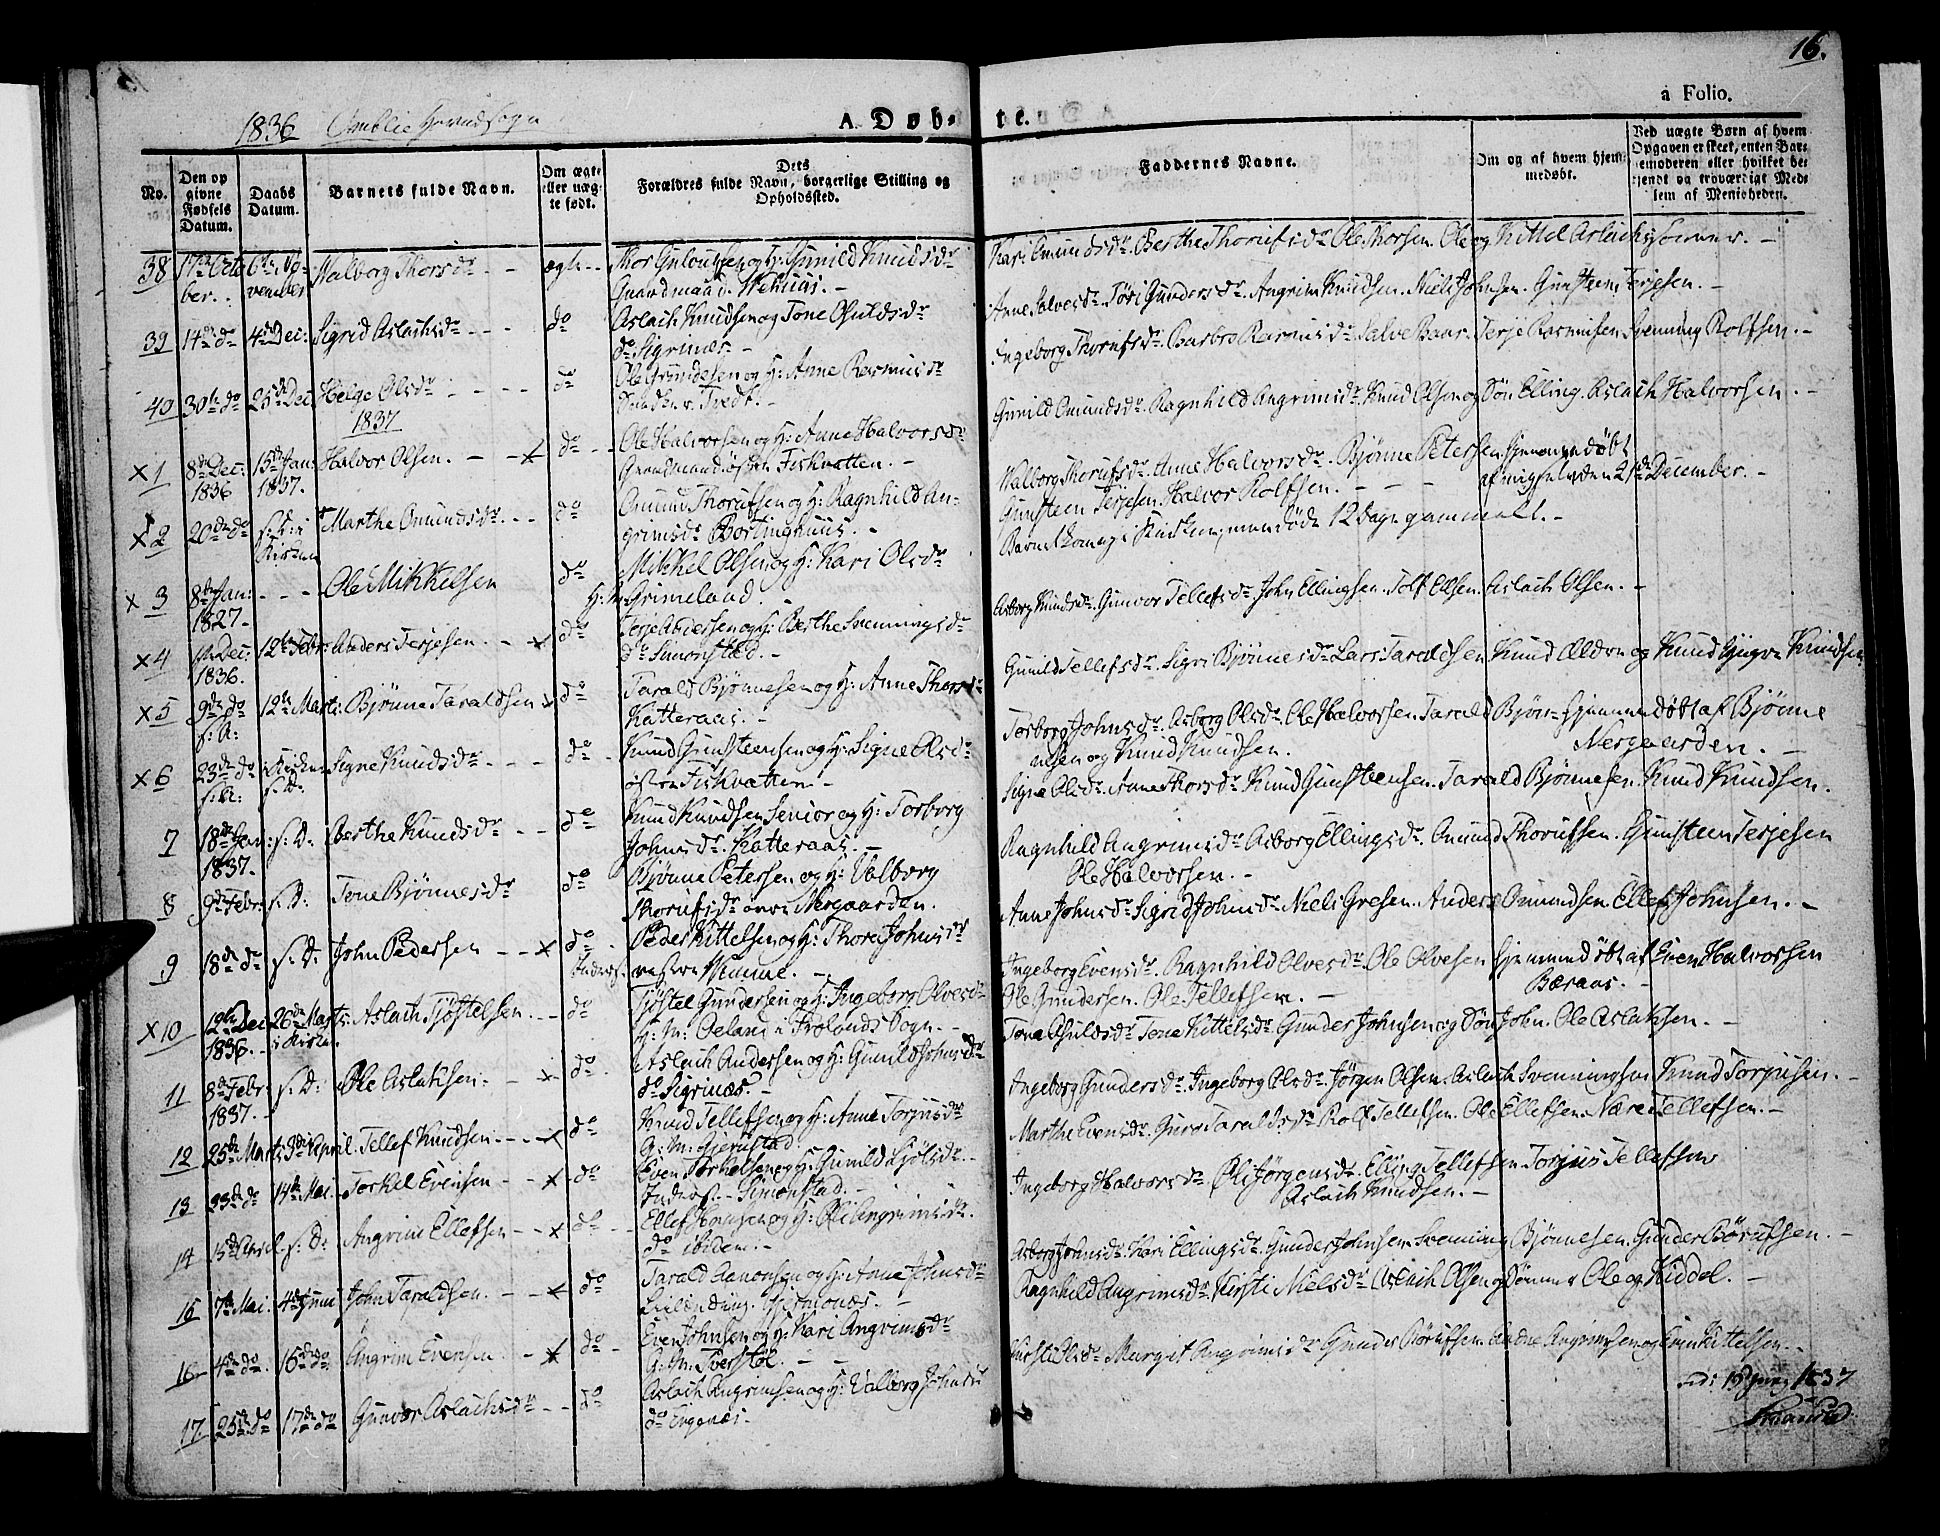 16.
a Folio.
1836 Omblie Hovedsogn
A. Døb- te.
No.
Den op
givne
Fødsels
Datum.
Daabs
Datum.
Barnets fulde Navn.
Om ægte
eller uæg-
te født.
Dets
Forældres fulde Navn, borgerlige Stilling og
Opholdssted.
Faddernes Navne.
Om og af hvem hjem-
medøbt.
Ved uægte Børn af hvem
Opgaven er skeet, enten Bar-
nemoderen eller hvilket be-
kjendt og troværdigt Med-
lem af Menigheden.
38 17de Octo 6te No- Valborg Thorsdr - - ægte - - Thor Gulouffen og H: Gunild Knudsdr Kari Omundsdr. Berthe Thorufsdr Ole Thorsen. Ole og Kittel Aslachsønner. -
ber. vember Gaardmand.
39 14de do 4de Dec: Sigrid Aslachsdr - - - do Aslach Knudsen og Tone Osuldsdr Anne Salvesdr. Tøri Gundersdr. Angrim Knudsen. Niels Johnsen. Gunsteen Terjesen. -
do Sigrinæs - Ingeborg Thorufsdr. Barbro Rasmusdr Salve Baar. Terje Rasmusen Svenning Rolfsen. -
40 30te do 25de Dec Helge Olsdr - - - do Ole Gundesen og H: Anne Rasmusdr
Tvedt. - Gunild Omundsdr. Ragnhild Angrimsdr. Knud Olsen og Søn Elling. Aslach Halvorsen. -
1837
x 1 8de Dec: 15de Jan: Halvor Olsen. - x do - - Ole Halvorsen og H: Anne Halvorsdr
1836 1837. Gaardmand østre Fiskvatten. - Valborg Thorufsdr. Anne Halvorsdr. Bjønne Petersen hjemmedøbt
x 2 20de do s: D: i Marthe Omundsdr. - - do Omund Thorufsen og H: Ragnhild An- Gunsteen Terjesen. Halvor Rolfsen. - - - af mig selv den 21de December. -
Kirken grimsdr Bortinghuus. - Barnet kom ei i Kirken, men døde 12 Dage gammelt. -
x 3 8de Jan: - - - Ole Mikkelsen do Mikkel Olsen og H: Kari Olsdr
1827. H: M: Grimeland. - Asborg Knudsdr. Gunvor Tellefsdr. John Ellingsen. Tolf Olsen. Aslach Olsen. -
x 4 Dec: 12te Febr: Anders Terjesen. - x do Terje Andersen og H: Berthe Svenningsdr
1836. do Simonstad. - Gunild Tellefsdr. Sigri Bjønnesdr Lars Taraldsen Knud Ældre og Knud Yngre Knudsen
x 5 9de do 12te Marts: Bjønne Taraldsen x do - Tarald Bjønnesen og H: Anne Thorsdr
s: A: Katteraas. - Torborg Johnsdr. Asborg Olsdr. Ole Halvorsen Tarald Bjøn- hjemmedøbt af Bjønne
nesen og Knud Knudsen. Nergaarden. -
x 6 23de do i Kirken Signe Knudsdr. - - - do - Knud Gunsteensen og H: Signe Olsdr
s: A: s: D: østre Fiskvatten - Signe Olsdr. Anne Thorsdr Knud Gunsteensen. Tarald Bjønnesen. Knud Knudsen.
7 18de Jan: s: D: Berthe Knudsdr - - do Knud Knudsen Senior og H: Torborg
1837. Johnsdr. Katteraas. - Ragnhild Angrimsdr Asborg Ellingsdr. Omund Thorufsen. Gunsteen Terjesen
Ole Halvorsen. -
8 9de Febr: s: D: Tone Bjønnesdr do Bjønne Petersen og H: Valborg
Thorufsdr Nergaarden. Anne Johnsdr Sigrid Johnsdr Niels Gresen. Anders Omundsen. Ellef Johnsen. -
9 18de do s: D: John Pedersen - - x do - Peder Kittelsen og H: Thore Johnsdr
Inderst. vestre Hemmel. - Ingeborg Evensdr. Ragnhild Olvesdr. Ole Olvesen hjemmedøbt af Even Halvorsen
Ole Gundersen. Ole Tellefsen. - Bæraas. -
x 10 12te Dec 26de Marts Aslach Tjøstelsen. - - do - Tjøstel Gundersen og H: Ingeborg Olvesdr
1836. - i Kirken. G: M: Øeland i Frolands Sogn. - Tone Osuldsdr Tone Kittelsdr. Gunder Johnsen og Søn John. Ole Aslaksen. -
11 8de Febr: s: D: Ole Aslaksen. - x do - Aslach Andersen og H: Gunild Johnsdr
1837. - do Sigrinæs. - Ingeborg Gundersdr. Ingeborg Olsdr. Jørgen Olsen. Aslach Svenningsen Knud Torjusen. -
12 25de Marts 3de April. Tellef Knudsen - - - x do Knud Tellefsen og H: Anne Torjusdr
G: M: Gjerustad. Marthe Evensdr. Guro Taraldsdr Rolf Tellefsen. Ole Ellefsen. Være Tellefsen. -
13 23de do 14de Mai. Torkel Evensen - - x - do - Even Torkelsen og H: Gunild Ljølsdr. -
Inderst. - Simonstad. - Ingeborg Halvorsdr. Oli Jørgensdr. Elling Tellefsen Torjus Tellefsen
Aslach Knudsen. -
14 15de April. s: D: Angrim Ellefsen - - x do - - Ellef Hansen og H: Oli Angrimsdr.
do ibidem. - Asborg Johnsdr. Kari Ellingsdr. Gunder Johnsen. Svenning Bjønnesen. Gunder Børufsen. -
15 7de Mai. 4de Juni John Taraldsen. - - x do Tarald Aanonsen og H: Anne Johnsdr
Leilending. Hjermonæs. - Ragnhild Angrimsdr. Kirsti Nielsdr Aslach Olsen og Sønner Ole og Kiddel. -
16 4de do. 16de do Angrim Evensen. - x do - Even Johnsen og H: Kari Angrimsdr
G: M: Tverstøl. - - Kirsti Olsdr Margit Angrimsdr Gunder Børufsen. Aadne Angrimsen og Even Kittelsen. -
17 25de do 17de do Gunvor Aslachsdr - - do Aslach Angrimsen og H: Valborg Johnsdr
do Eigenæs. -
1837